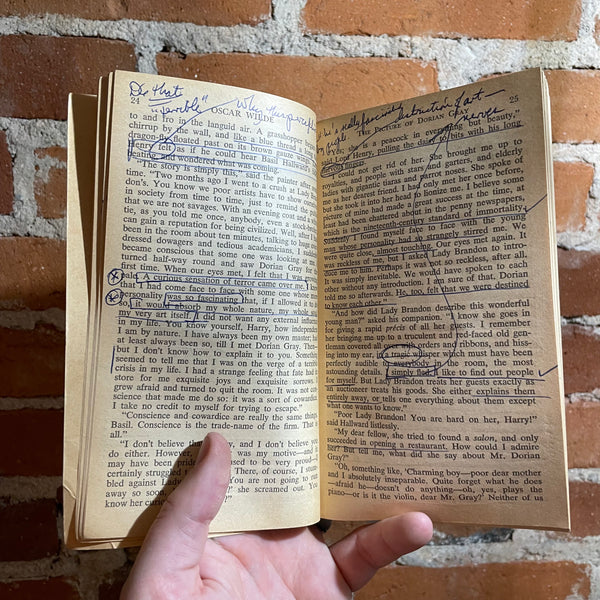 Do that
24
OSCAR WILDE
to and fro in the languid air. A grasshopper began
chirrup by the wall, and like a blue thread a long
dragon-fly floated past on its brown gauze wings.
Henry felt as if he could hear Basil Hallward's
beating, and wondered what was coming.
"The story is simply this," said the painter after
time. "Two months ago I went to a crush at Lady
don's. You know we poor artists have to show
in society from time to time, just to remind the
that we are not savages. With an evening coat and
tie, as you told me once, anybody, even a stock-
can gain a reputation for being civilized. Well, after
been in the room about ten minutes, talking to huge
dressed dowagers and tedious academicians, I
became conscious that some one was looking at
turned half-way round and saw Dorian Gray for
first time. When our eyes met, I felt that I was
pale. A curious sensation of terror came over me.
that I had come face to face with some one whose
personality was so fascinating that, if I allowed it to
so, it would absorb my whole nature, my whole
my very art itself. I did not want any external
in my life. You know yourself, Harry, how
am by nature. I have always been my own master;
at least always been so, till I met Dorian Gray. Then
but I don't know how to explain it to you. Something
seemed to tell me that I was on the verge of a
crisis in my life. I had a strange feeling that fate had
store for me exquisite joys and exquisite sorrows.
grew afraid and turned to quit the room. It was not
science that made me do so: it was a sort of
I take no credit to myself for trying to escape."
"Conscience and cowardice are really the same things,
Basil. Conscience is the trade-name of the firm. That
all."
"I don't believe that, and I don't believe you
do either. However, was my motive—and it
may have been pride, used to be very proud—
certainly struggled to There, of course, I
bled against Lady "You are not going to run
away so soon, she screamed out. You
know her curious
destruction of art—
THE PICTURE OF DORIAN GRAY
25
she is a peacock in everything but beauty,"
said Lord Henry, pulling the daisy to bits with his long
nervous fingers.
I could not get rid of her. She brought me up to
royalties, and people with stars and garters, and elderly
ladies with gigantic tiaras and parrot noses. She spoke of
me as her dearest friend. I had only met her once before,
but she took it into her head to lionize me. I believe some
picture of mine had made a great success at the time, at
least had been chattered about in the penny newspapers,
which is the nineteenth-century standard of immortality.
Suddenly I found myself face to face with the young
man whose personality had so strangely stirred me. We
were quite close, almost touching. Our eyes met again. It
was reckless of me, but I asked Lady Brandon to intro-
duce me to him. Perhaps it was not so reckless, after all.
It was simply inevitable. We would have spoken to each
other without any introduction. I am sure of that. Dorian
told me so afterwards. He, too, felt that we were destined
to know each other."
"And how did Lady Brandon describe this wonderful
young man?" asked his companion. "I know she goes in
for giving a rapid précis of all her guests. I remember
her bringing me up to a truculent and red-faced old gen-
tleman covered all over with orders and ribbons, and hiss-
ing into my ear, in a tragic whisper which must have been
perfectly audible to everybody in the room, the most
astounding details. I simply fled. I like to find out people
for myself. But Lady Brandon treats her guests exactly as
an auctioneer treats his goods. She either explains them
entirely away, or tells one everything about them except
what one wants to know."
"Poor Lady Brandon! You are hard on her, Harry!"
said Hallward listlessly.
"My dear fellow, she tried to found a salon, and only
succeeded in opening a restaurant. How could I admire
her? But tell me, what did she say about Mr. Dorian
Gray?"
"Oh, something like, 'Charming boy—poor dear mother
and I absolutely inseparable. Quite forget what he does
—afraid he—doesn't do anything—oh, yes, plays the
piano—or is it the violin, dear Mr. Gray?' Neither of us